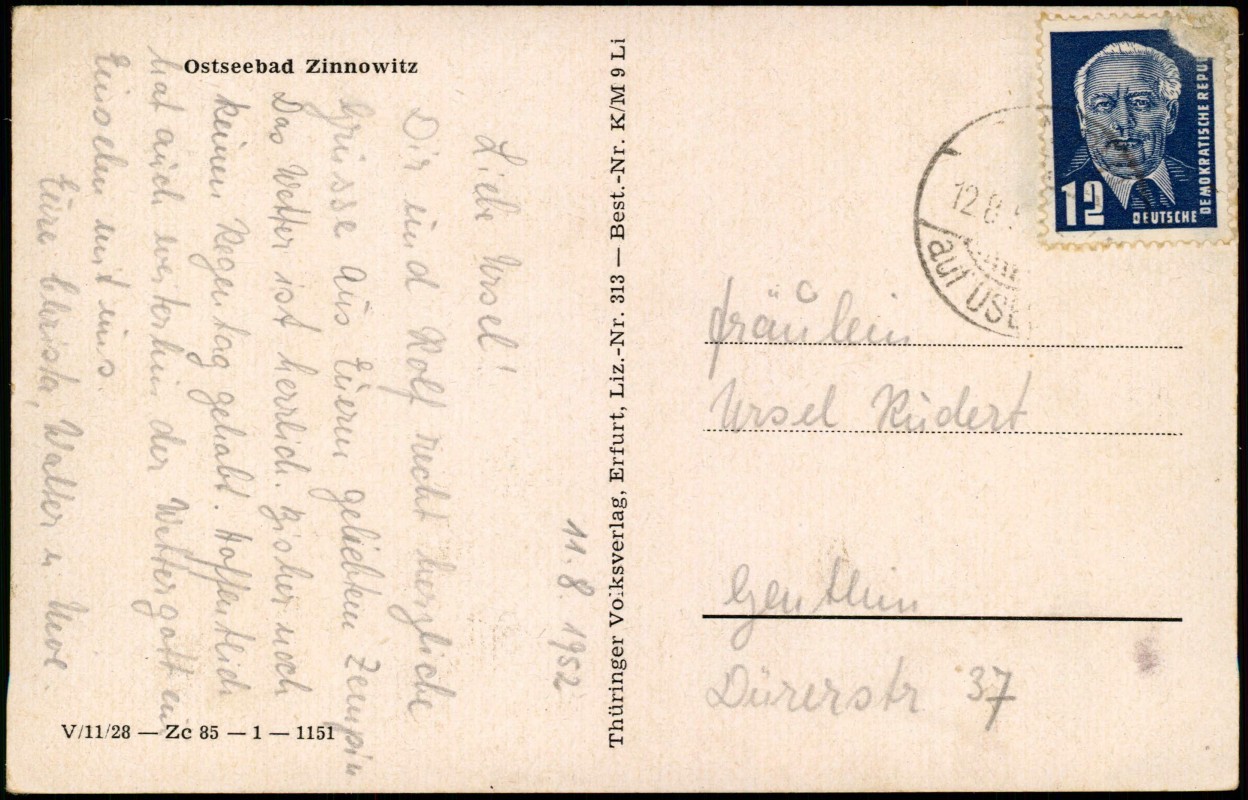 Ostseebad Zinnowitz
11.8.1952
Liebe Ursel!
Dir und Rolf recht herzliche
Grüsse aus Euerm geliebten Zempin
Das Wetter ist herrlich. Bisher noch
keinen Regentag gehabt. Hoffentlich
hat auch weiterhin der Wettergott ein
Einsehen mit uns.
Eure Christa, Walter u. Uwe.
V/11/28 — Zc 85 — 1 — 1151
Thüringer Volksverlag, Erfurt, Liz.-Nr. 313 — Best.-Nr. K/M 9 Li
12
DEUTSCHE
DEMOKRATISCHE REPU
12.8.5
auf USE
Fräulein
Ursel Rüdert
Genthin
Dürerstr 37